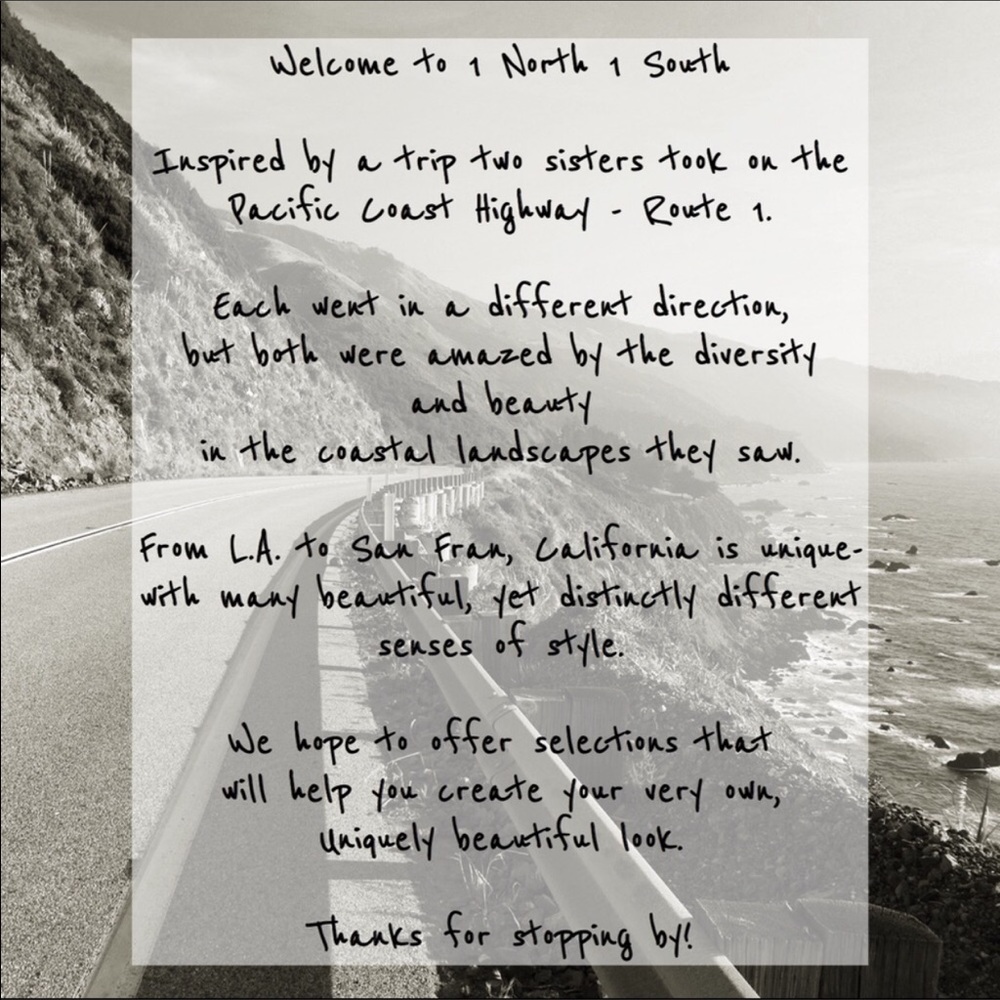 Welcome to 1 North 1 South
Inspired by a trip two sisters took on the
Pacific Coast Highway - Route 1.
Each went in a different direction,
but both were amazed by the diversity
and beauty
in the coastal landscapes they saw.
From L.A. to San Fran, California is unique-
with many beautiful, yet distinctly different
senses of style.
We hope to offer selections that
will help you create your very own,
Uniquely beautiful look.
Thanks for stopping by!